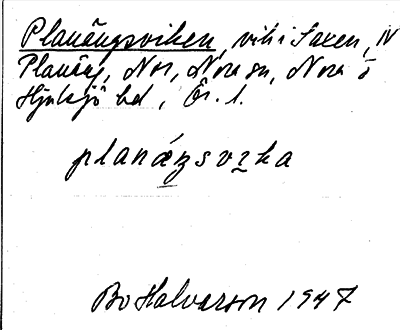 Planängsviken, vik i Saxen, NV
Planäng, Nor, Nora sn, Nora o
Hjulsjö bd, Ör. l.
planáŋsvıka
Bo Halvarson 1947